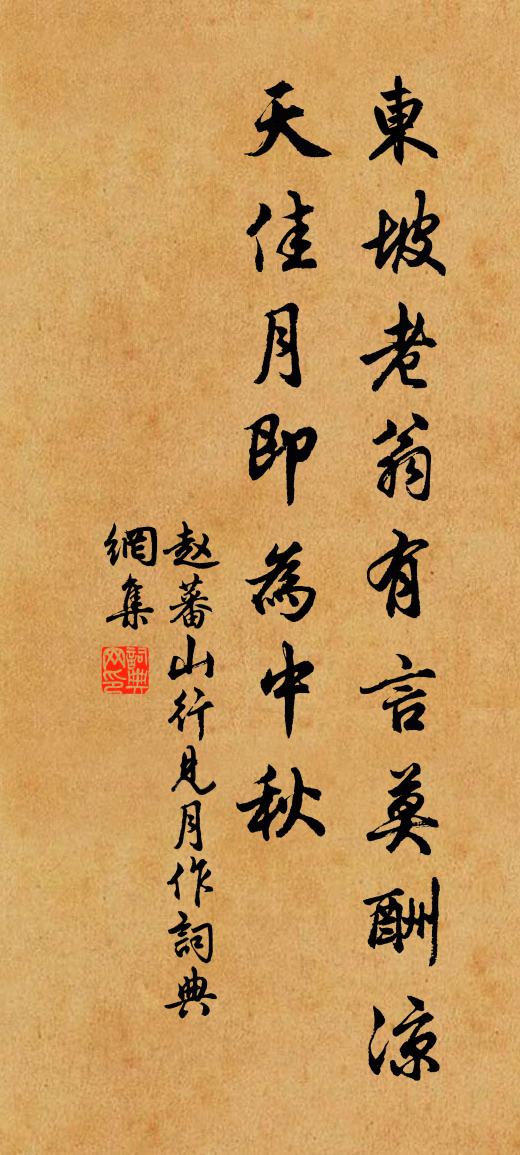 東坡老翁有言莫酬涼
天佳月即為中秋
赵蕃山行見月作詞典
網集
詞典
网印